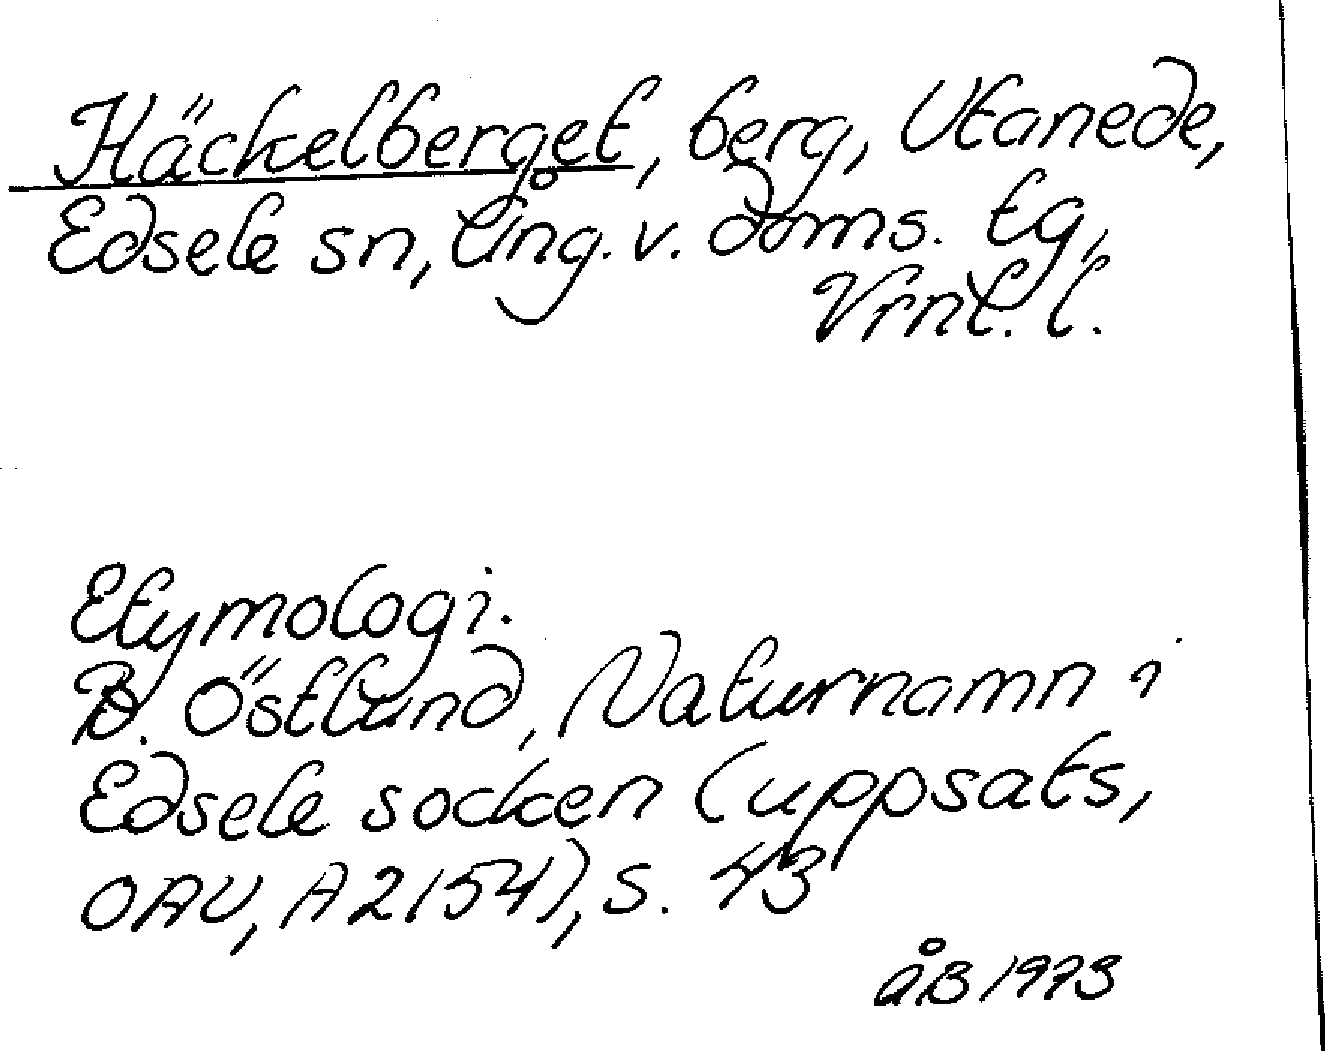 Häckelberget, berg, Utanede,
Edsele sn, Ång. v. doms. tg,
Vrnl. l.
Etymologi.
B. Östlund, Naturnamn i
Edsele socken (uppsats,
OAU, A 2154), s. 43
åB 1973